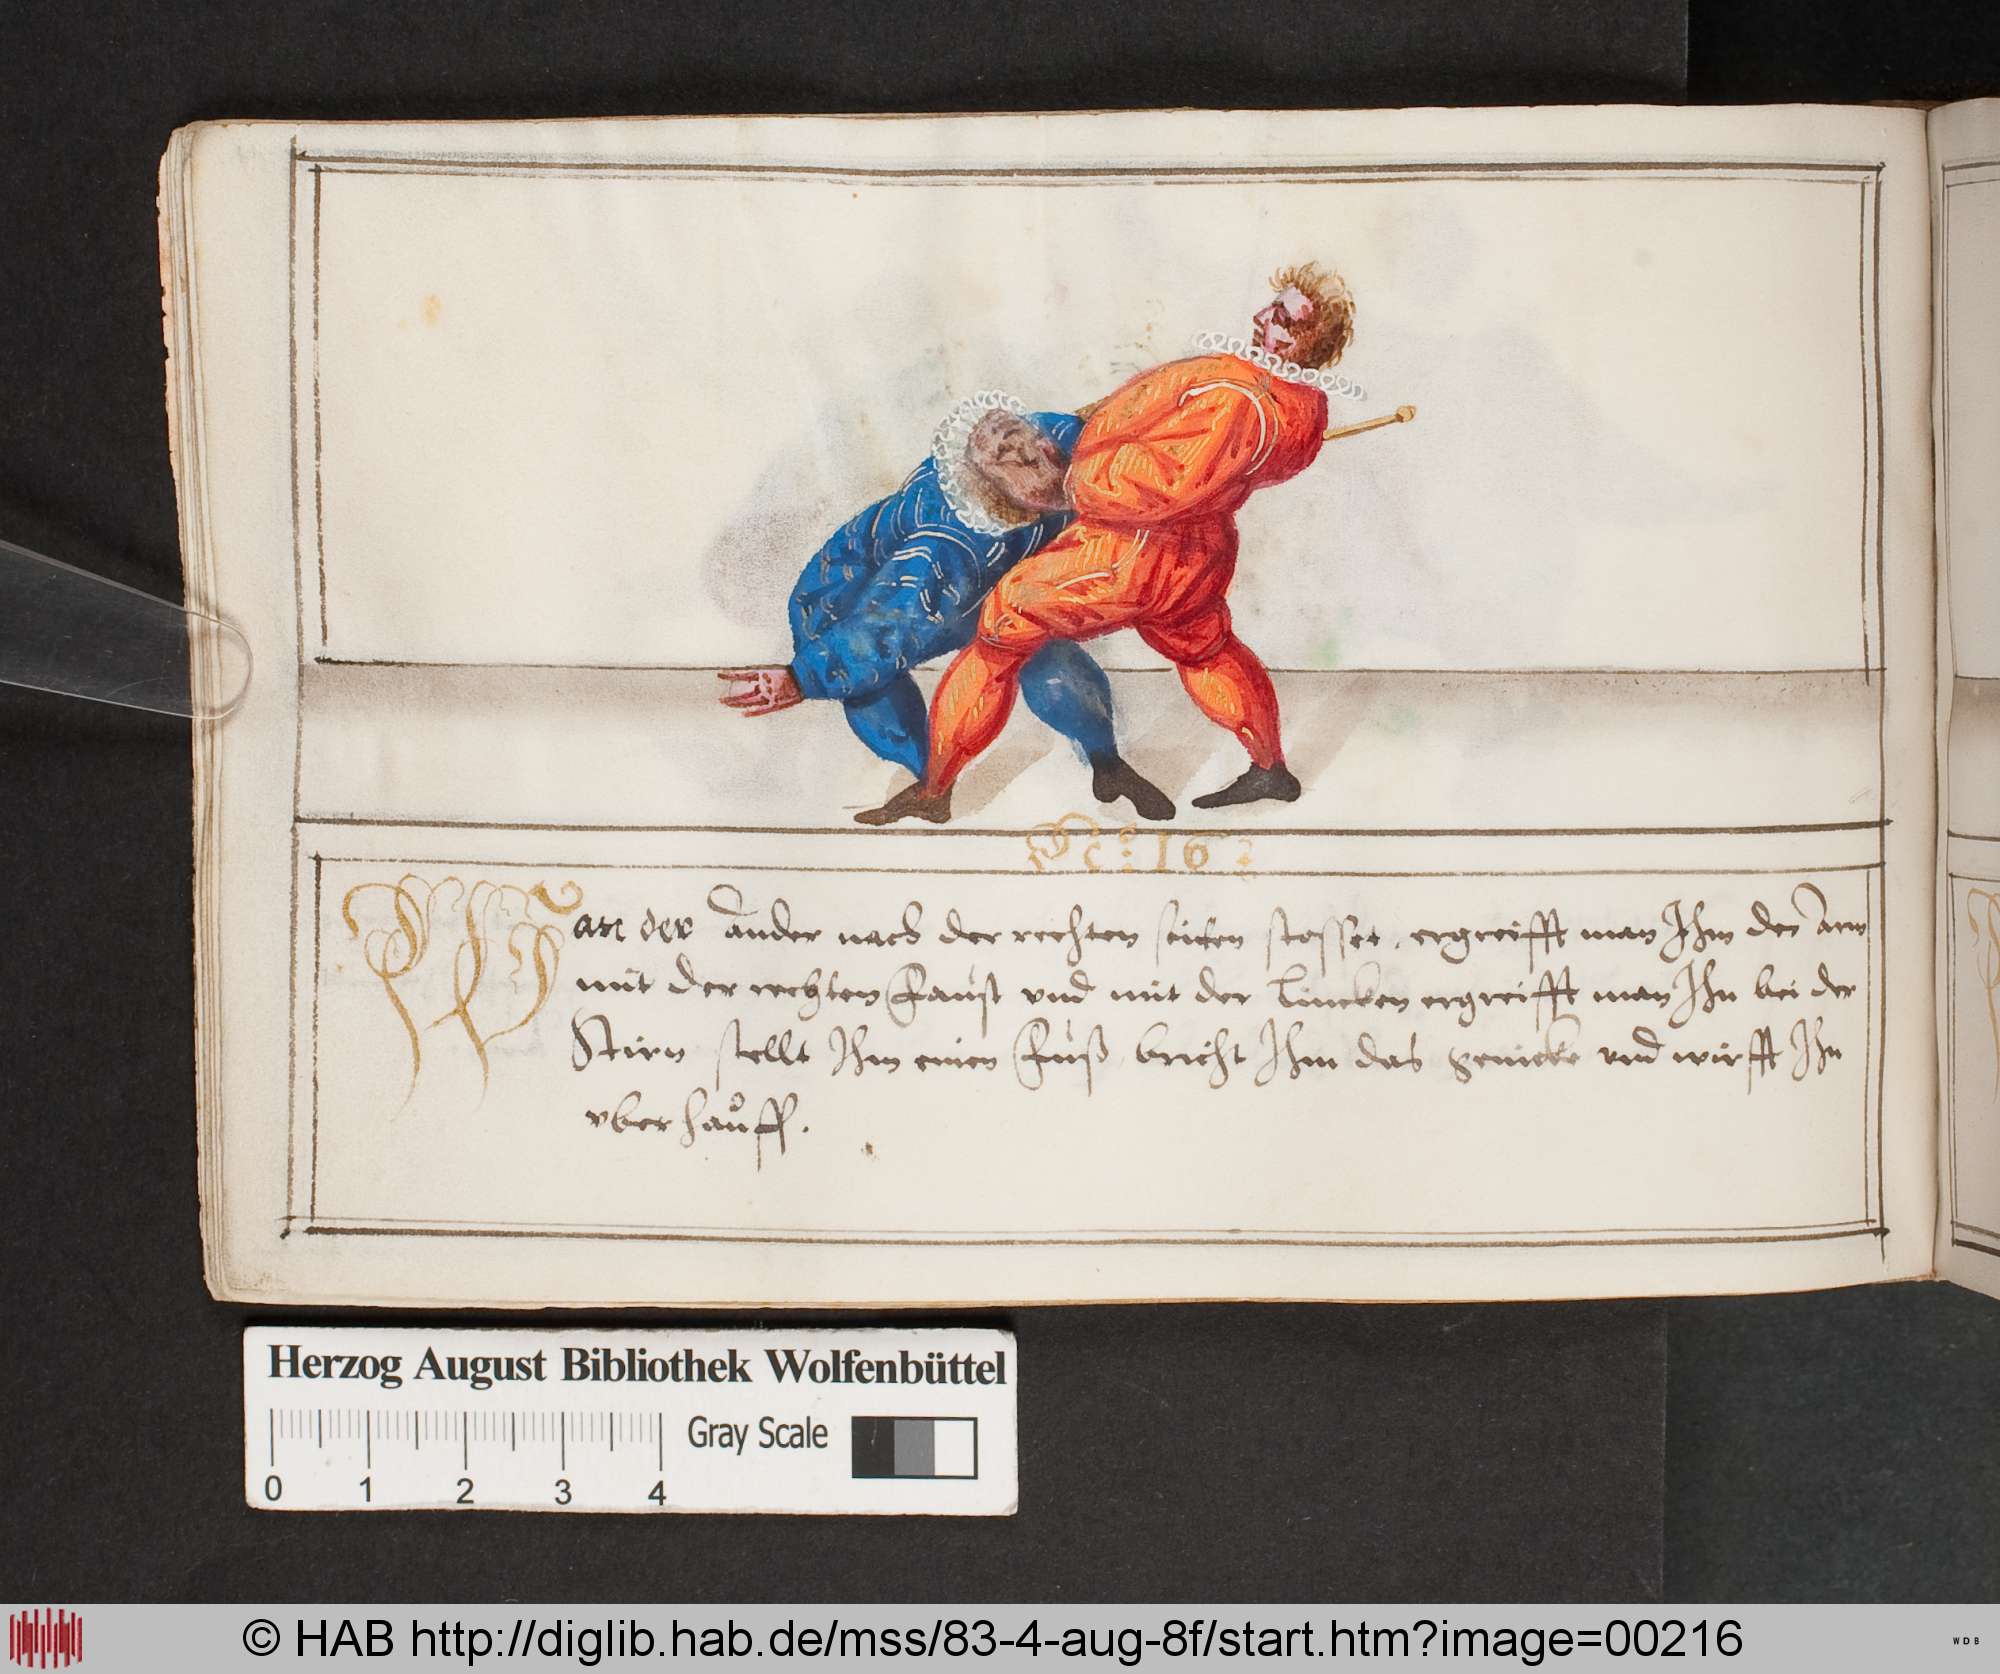 No: 16
Wan der ander nach der rechten seiten stosset, ergreifft man Ihm den Arm
mit der rechten Faust vnd mit der Lincken ergreifft man Ihn bei der
Stirn stellt Ihm einen Fuß bricht Ihm das genicke vnd wirfft Ihn
vber hauff.
Herzog August Bibliothek Wolfenbüttel
Gray Scale
0 1 2 3 4
© HAB http://diglib.hab.de/mss/83-4-aug-8f/start.htm?image=00216
WDB